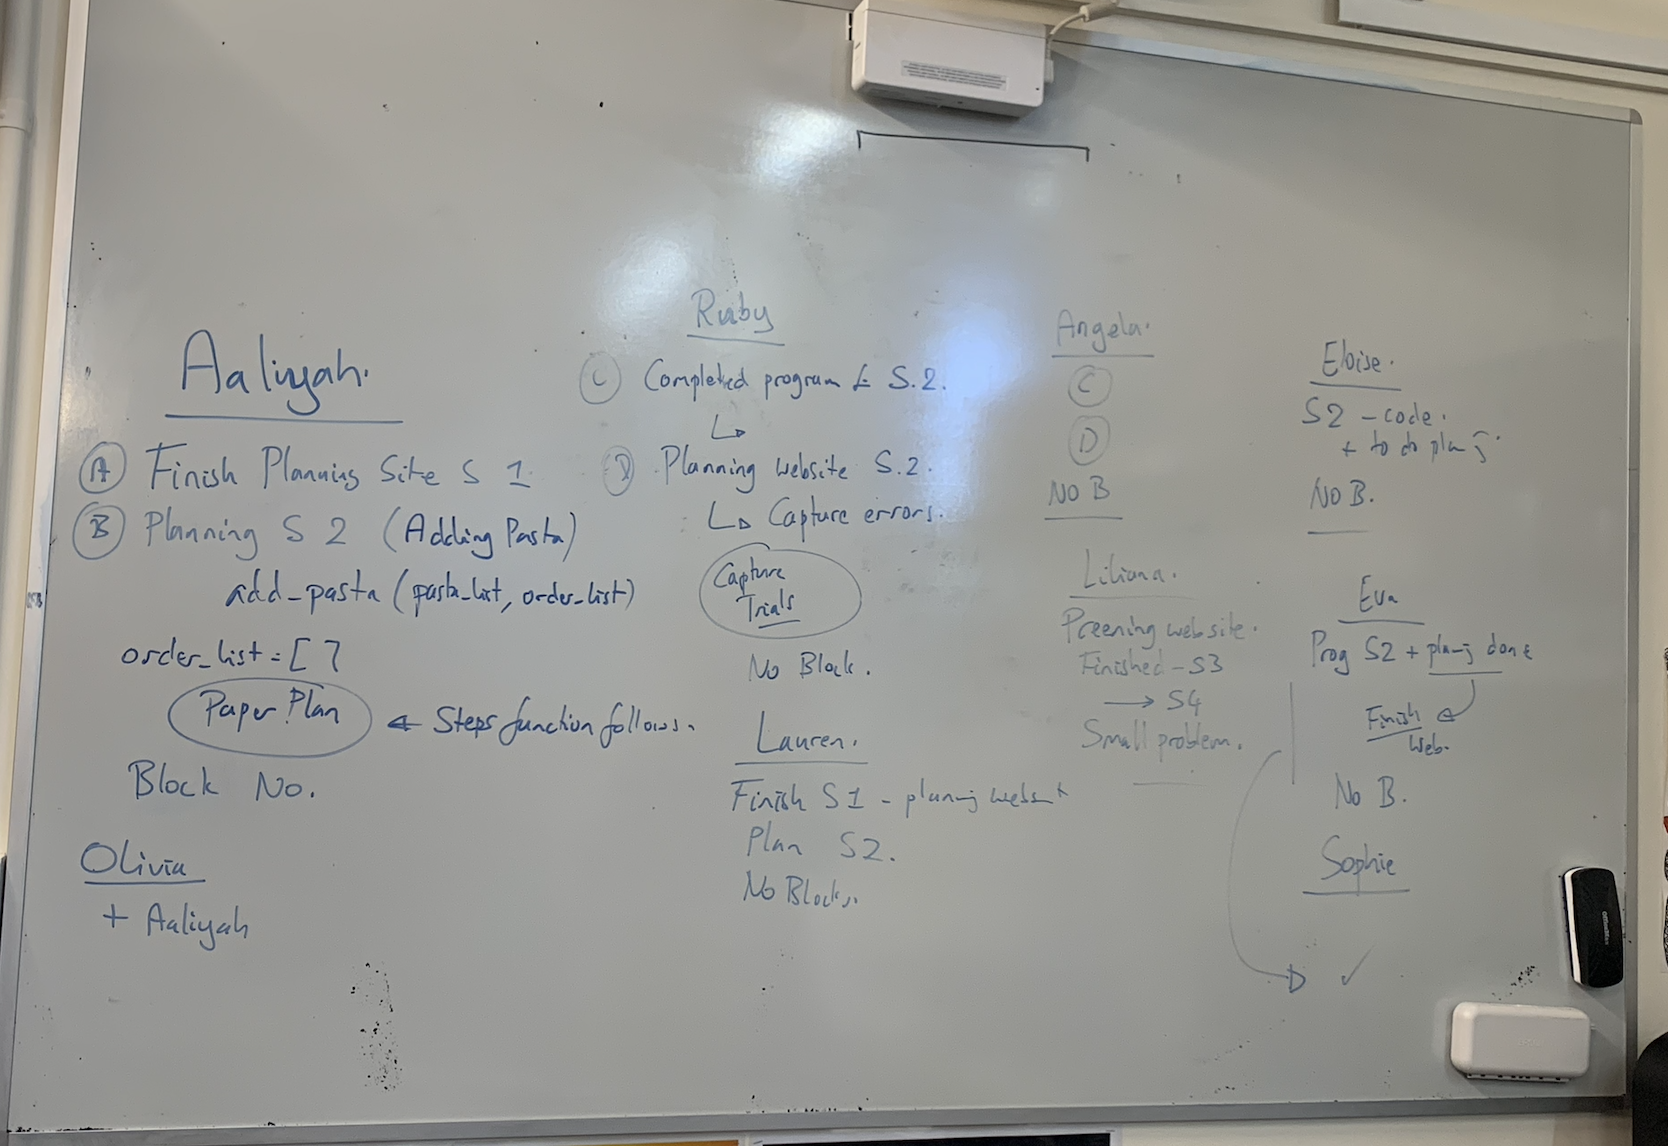 Aaliyah.
(A) Finish Planning Site S 1
(B) Planning S 2 (Adding Pasta)
add_pasta (pasta_list, order_list)
order_list = [ ]
Paper Plan ← Steps function follows.
Block No.
Olivia
+ Aaliyah
Ruby
(C) Completed program S.2.
(D) Planning website S.2.
Capture errors.
Capture
Trials
No Block.
Lauren.
Finish S1 -
Plan S2.
No Blocks.
Angela.
(C)
(D)
NO B
Liliana.
website.
Finished - S3
→ S4
Small problem.
Eloise.
S2 - code.
+ to do
NO B.
Eva
Prog S2 + done
Finish
Web.
No B.
Sophie
✓